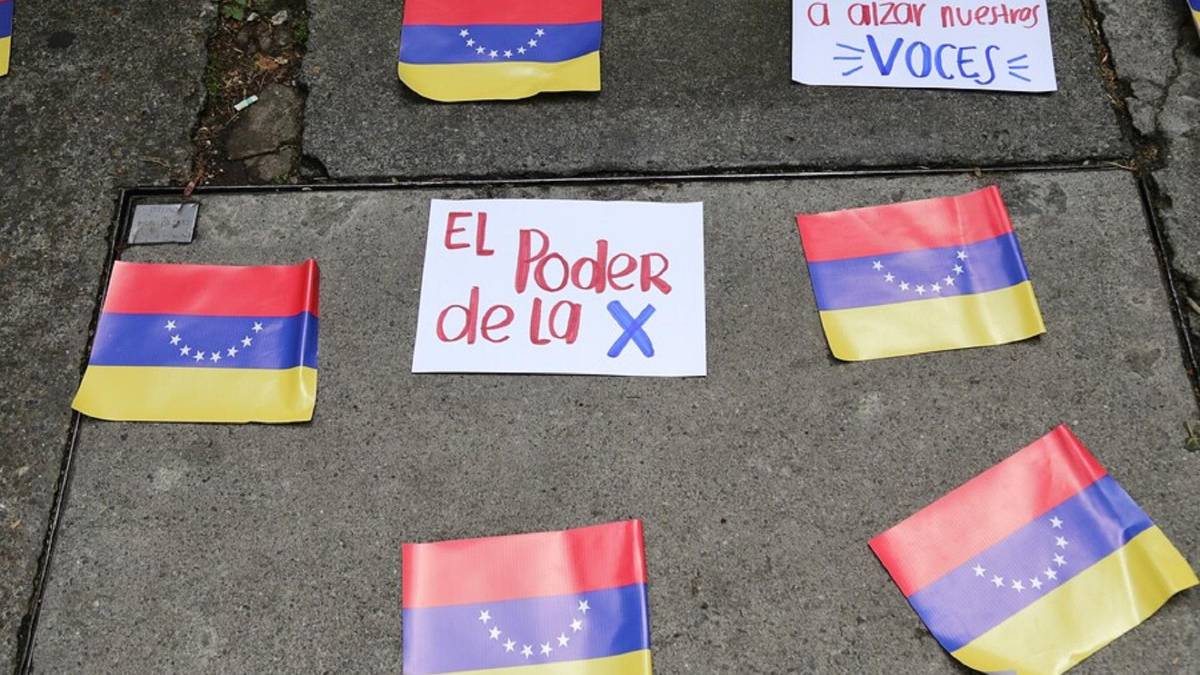 a alzar nuestras
VOCES
EL Poder
de la X